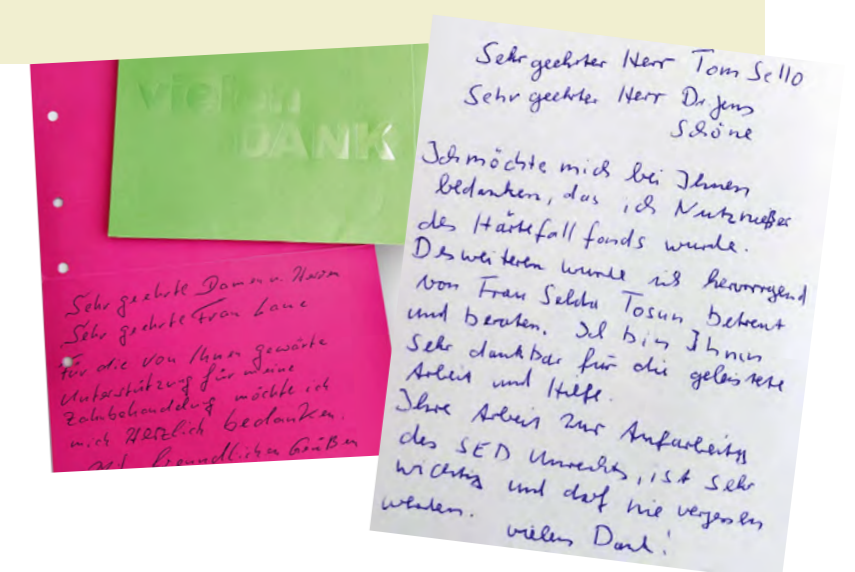 vielen
DANK
Sehr geehrte Damen u. Herren
Sehr geehrte Frau
für die von Ihnen gewärte
Unterstützung für meine
Zahnbehandelung möchte ich
mich Herzlich bedanken.
Mit freundlichen Grüßen
Sehr geehrter Herr Tom Sello
Sehr geehrter Herr Dr. Jens
Schöne
Ich möchte mich bei Ihnen
bedanken, das ich Nutznießer
des Härtefallfonds wurde.
Desweiteren wurde ich hervorragend
von Frau Selda Tosun betreut
und beraten. Ich bin Ihnen
sehr dankbar für die geleistete
Arbeit und Hilfe.
Ihre Arbeit zur Aufarbeitung
des SED Unrechts, ist sehr
wichtig und darf nie vergessen
werden. vielen Dank!